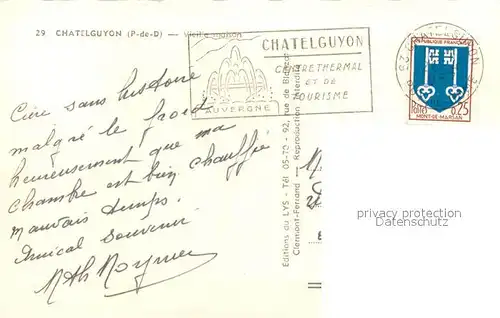 29 CHATELGUYON (P-de-D) — Vieille maison
CHATELGUYON
CENTRE THERMAL
ET DE
TOURISME
AUVERGNE
RÉPUBLIQUE FRANÇAISE
POSTES 0,25
MONT-DE-MARSAN
Cure sans histoire
malgré le froid
heureusement que ma
chambre est bien chauffée
mauvais temps.
Amical souvenir
Editions du LYS - Tél 05-70 - 92, rue de
Clermont-Ferrand — Reproduction Interdite
privacy protection
Datenschutz